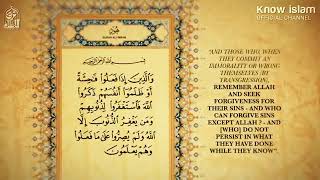 Know islam
OFFICIAL CHANNEL
وَالَّذِينَ إِذَا فَعَلُوا فَاحِشَةً
أَوْ ظَلَمُوا أَنْفُسَهُمْ ذَكَرُوا
اللَّهَ فَاسْتَغْفَرُوا لِذُنُوبِهِمْ
وَمَن يَغْفِرُ الذُّنُوبَ إِلَّا
اللَّهُ وَلَمْ يُصِرُّوا عَلَىٰ مَا فَعَلُوا
وَهُمْ يَعْلَمُونَ
"AND THOSE WHO, WHEN
THEY COMMIT AN
IMMORALITY OR WRONG
THEMSELVES [BY
TRANSGRESSION],
REMEMBER ALLAH
AND SEEK
FORGIVENESS FOR
THEIR SINS - AND WHO
CAN FORGIVE SINS
EXCEPT ALLAH? - AND
[WHO] DO NOT
PERSIST IN WHAT
THEY HAVE DONE
WHILE THEY KNOW".